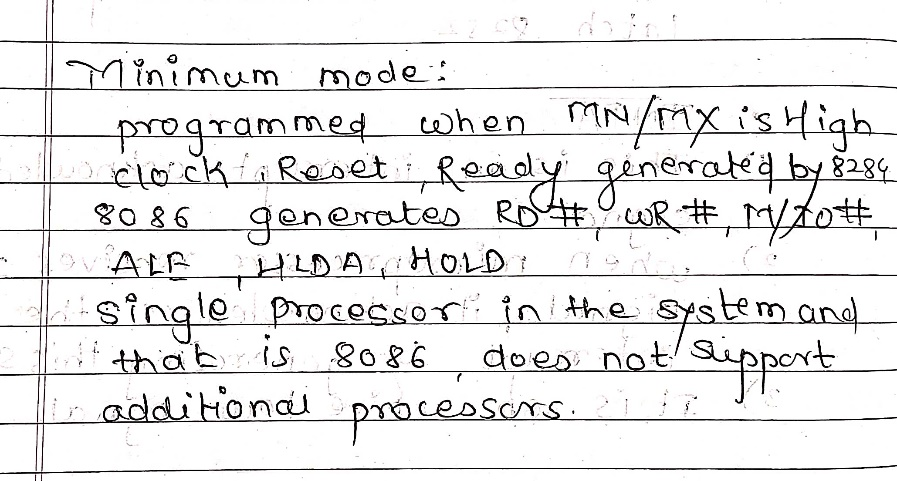 Minimum mode:
programmed when MN/MX is High
clock, Reset, Ready generated by 8284
8086 generates RD#, WR#, M/IO#,
ALE, HLDA, HOLD
single processor in the system and
that is 8086, does not support
additional processors.